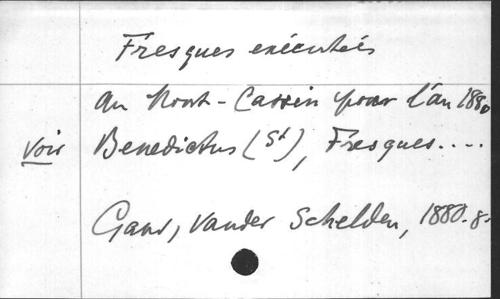 Fresques exécutées
au Mont-Cassin pour l'an 1880
voir Benedictus (St), Fresques....
Gand, Vander Schelden, 1880. 8.